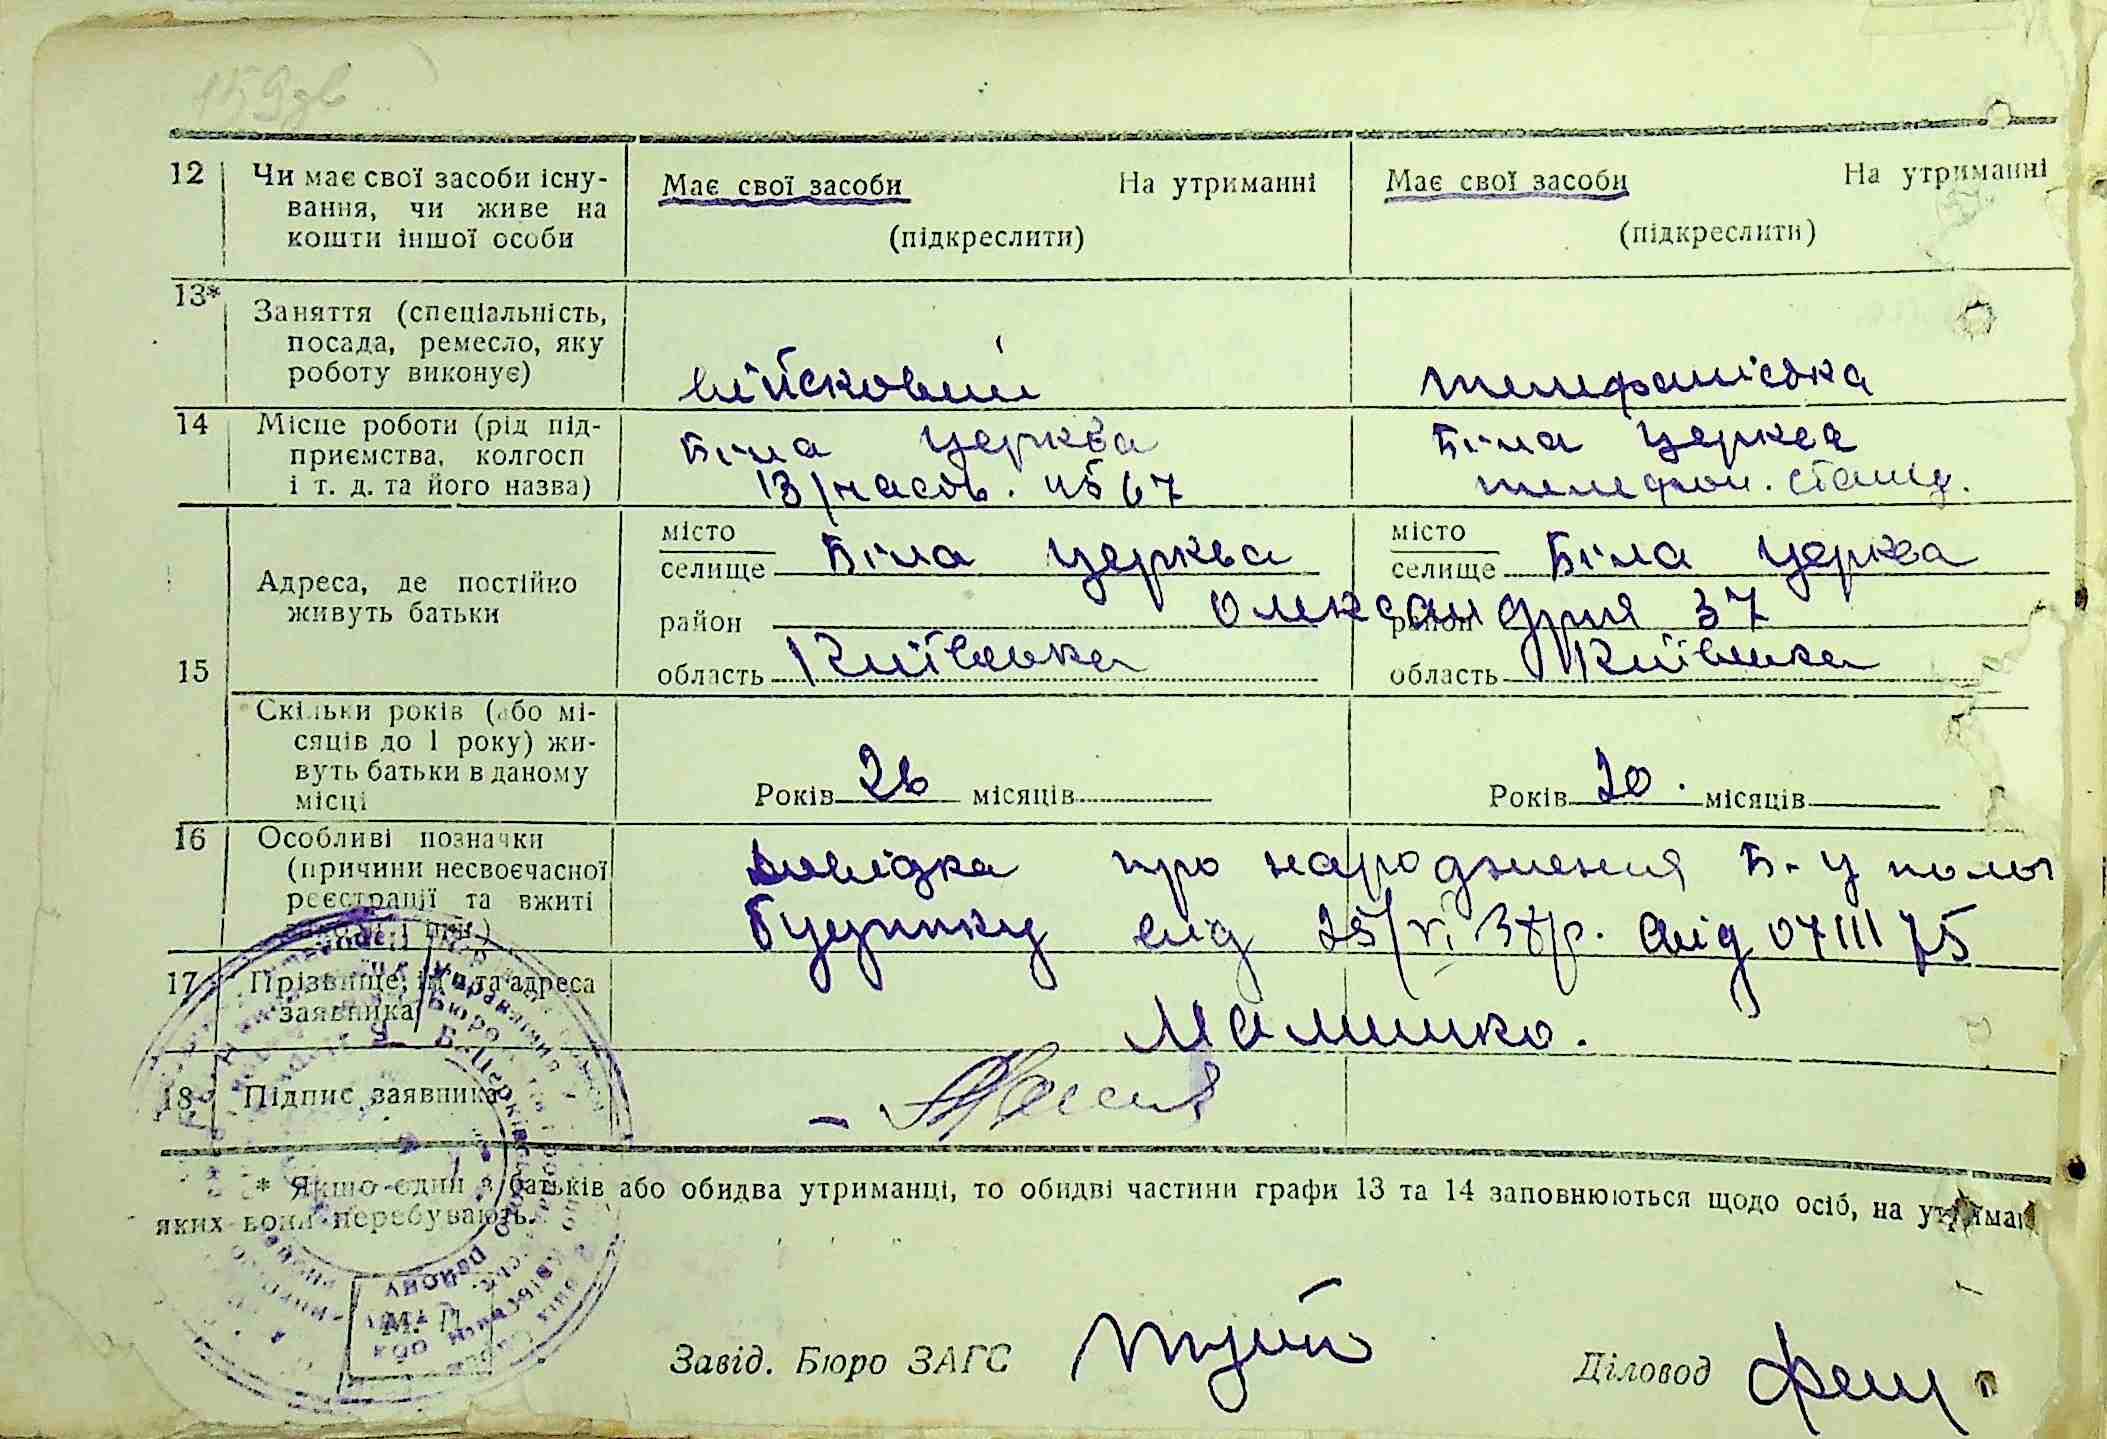 159 зв
12 Чи має свої засоби існу- Має свої засоби На утриманні Має свої засоби На утриманні
вання, чи живе на
кошти іншої особи (підкреслити) (підкреслити)
13* Заняття (спеціальність,
посада, ремесло, яку
роботу виконує) війсковий телефоністка
14 Місце роботи (рід під- Біла церква Біла церква
приємства, колгосп
і т. д. та його назва) 13/часов. телефон. станц.
місто місто
селище Біла церква селище Біла церква
Адреса, де постійко
живуть батьки
район Олександрия 37 район
15 область Київська область Київська
Скільки років (або мі-
сяців до 1 року) жи-
вуть батьки в даному
місці Років 26 місяців Років 20 місяців
16 Особливі позначки
(причини несвоєчасної довідка про народження Б-Ц полог
реєстрації та вжиті
заходи і пнн.) будинку від 25/VI 37р.
17 Прізвище, ім'я та адреса
заявника Малишко.
18 Підпис заявника
* Якшо один з батьків або обидва утриманці, то обидві частини графи 13 та 14 заповнюються щодо осіб, на утриман
яких вони перебувають.
М. П.
Завід. Бюро ЗАГС Діловод